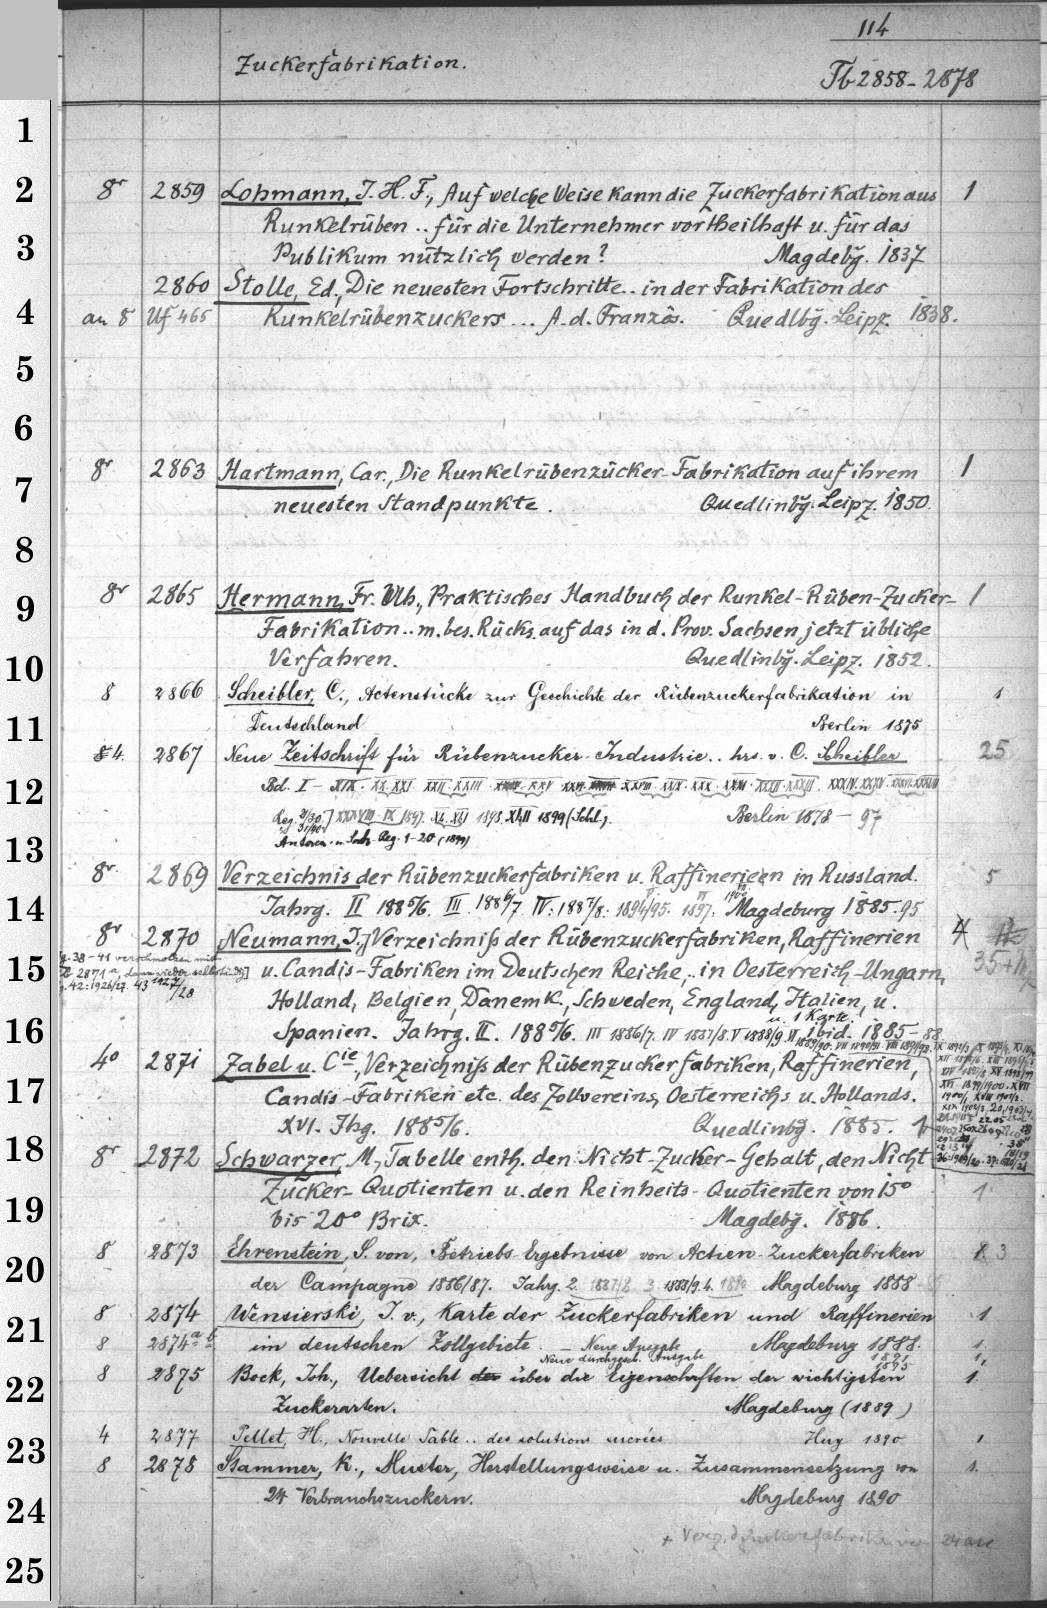 114
Zuckerfabrikation.
Tb 2858-2878
1
2
8r 2859 Lohmann, J. H. F., Auf welche Weise kann die Zuckerfabrikation aus 1
Runkelrüben .. für die Unternehmer vortheilhaft u. für das
3
Publikum nützlich werden? Magdebg. 1837
2860 Stolle, Ed., Die neuesten Fortschritte .. in der Fabrikation des
4
an 8 Uf 465 Runkelrübenzuckers ... A. d. Französ. Quedlbg. Leipz. 1838.
5
6
8r 2863 Hartmann, Car., Die Runkelrübenzücker-Fabrikation auf ihrem 1
7
neuesten Standpunkte. Quedlinbg. Leipz. 1850.
8
8r 2865 Hermann, Fr. Ulh., Praktisches Handbuch der Runkel-Rüben-Zucker- 1
9
Fabrikation .. m. bes. Rücks. auf das in d. Prov. Sachsen jetzt übliche
10
Verfahren. Quedlinbg. Leipz. 1852.
8 2866 Scheibler, C., Actenstücke zur Geschichte der Rübenzuckerfabrikation in 1
11
Deutschland Berlin 1875
4. 2867 Neue Zeitschrift für Rübenzucker-Industrie .. hrs. v. C. Scheibler 25
12
Bd. I - XIX. XX. XXI XXII. XXIII
Berlin 1878 - 97
1898. XLII 1899 (Schl.).
Autoren- u. Sach-Reg. 1-20. (1899)
13
8r. 2869 Verzeichnis der Rübenzuckerfabriken u. Raffinerieen in Russland. 5
14
Jahrg. II 1885/6. III 1886/7 IV: 1887/8. 1894/95. 1897. Magdeburg 1885-95
8r 2870 Neumann, J., Verzeichniß der Rübenzuckerfabriken, Raffinerien 4
15
u. Candis-Fabriken im Deutschen Reiche, .. in Oesterreich-Ungarn,
Holland, Belgien, Dänemk., Schweden, England, Italien, u.
u. 1 Karte.
16
Spanien. Jahrg. II. 1885/6. III 1886/7. IV 1887/8. V 1888/9 VI ibid. 1885-88
4o 2871 Zabel u. Cie, Verzeichniss der Rübenzuckerfabriken, Raffinerien,
17
Candis-Fabriken etc. des Zollvereins, Oesterreichs u. Hollands.
XVI. Jhg. 1885/6. Quedlinbg. 1885.
18
8r 2872 Schwarzer, M., Tabelle enth. den Nicht-Zucker-Gehalt, den Nicht
Zucker-Quotienten u. den Reinheits-Quotienten von 15° 1
19
bis 20° Brix. Magdebg. 1886.
8 2873 Ehrenstein, S. von, Betriebs-Ergebnisse von Actien-Zuckerfabriken 3
20
der Campagne 1886/87. Jahrg. 2. 1887/8 3. 1888/9. 4. 1890 Magdeburg 1888
8 2874 Wensierski, J. v., Karte der Zuckerfabriken und Raffinerien 1
21
8 2874 a b im deutschen Zollgebiete. - Neue Ausgabe Magdeburg 1888. 1.
Neue durchgeseh. Ausgabe 1895 1,
8 2875 Bock, Joh., Uebersicht über die Eigenschaften der wichtigsten 1.
22
Zuckerarten. Magdeburg (1889)
4 2877 Pellet, H., Nouvelle Table .. des solutions sucrées 1890 1
23
8 2878 Stammer, K., Muster, Herstellungsweise u. Zusammensetzung von 1.
24 Verbrauchszuckern. Magdeburg 1890
24
25